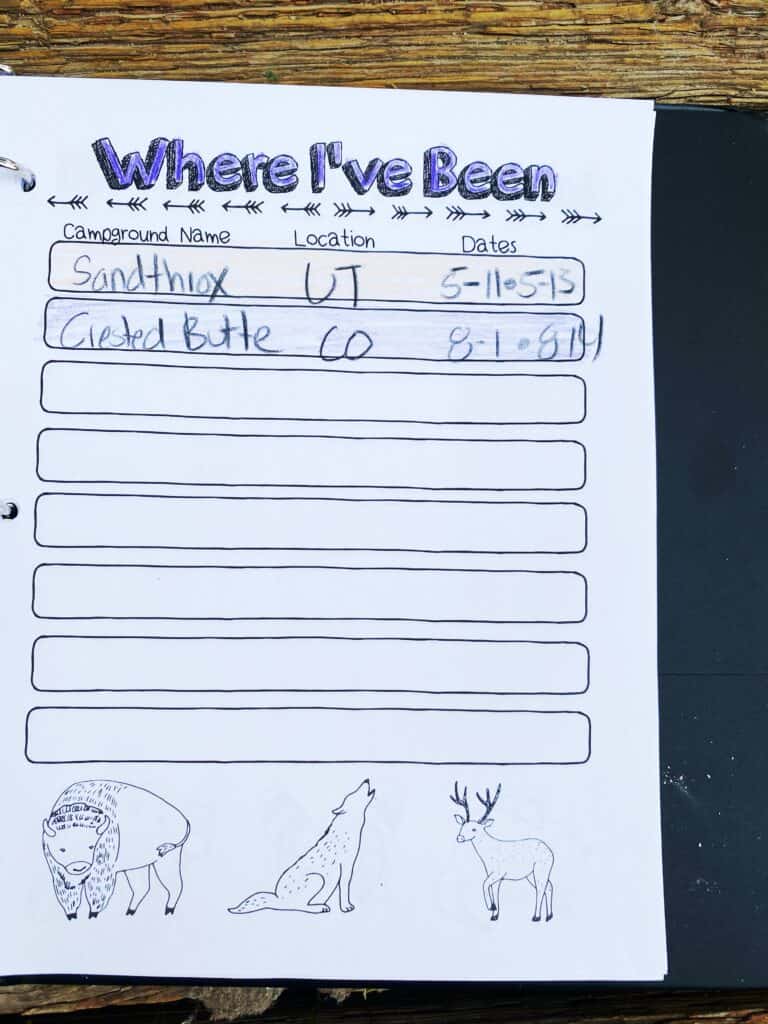 Where I've Been
Campground Name Location Dates
Sandthrox UT 5-11•5-13
Crested Butte CO 8-1•814